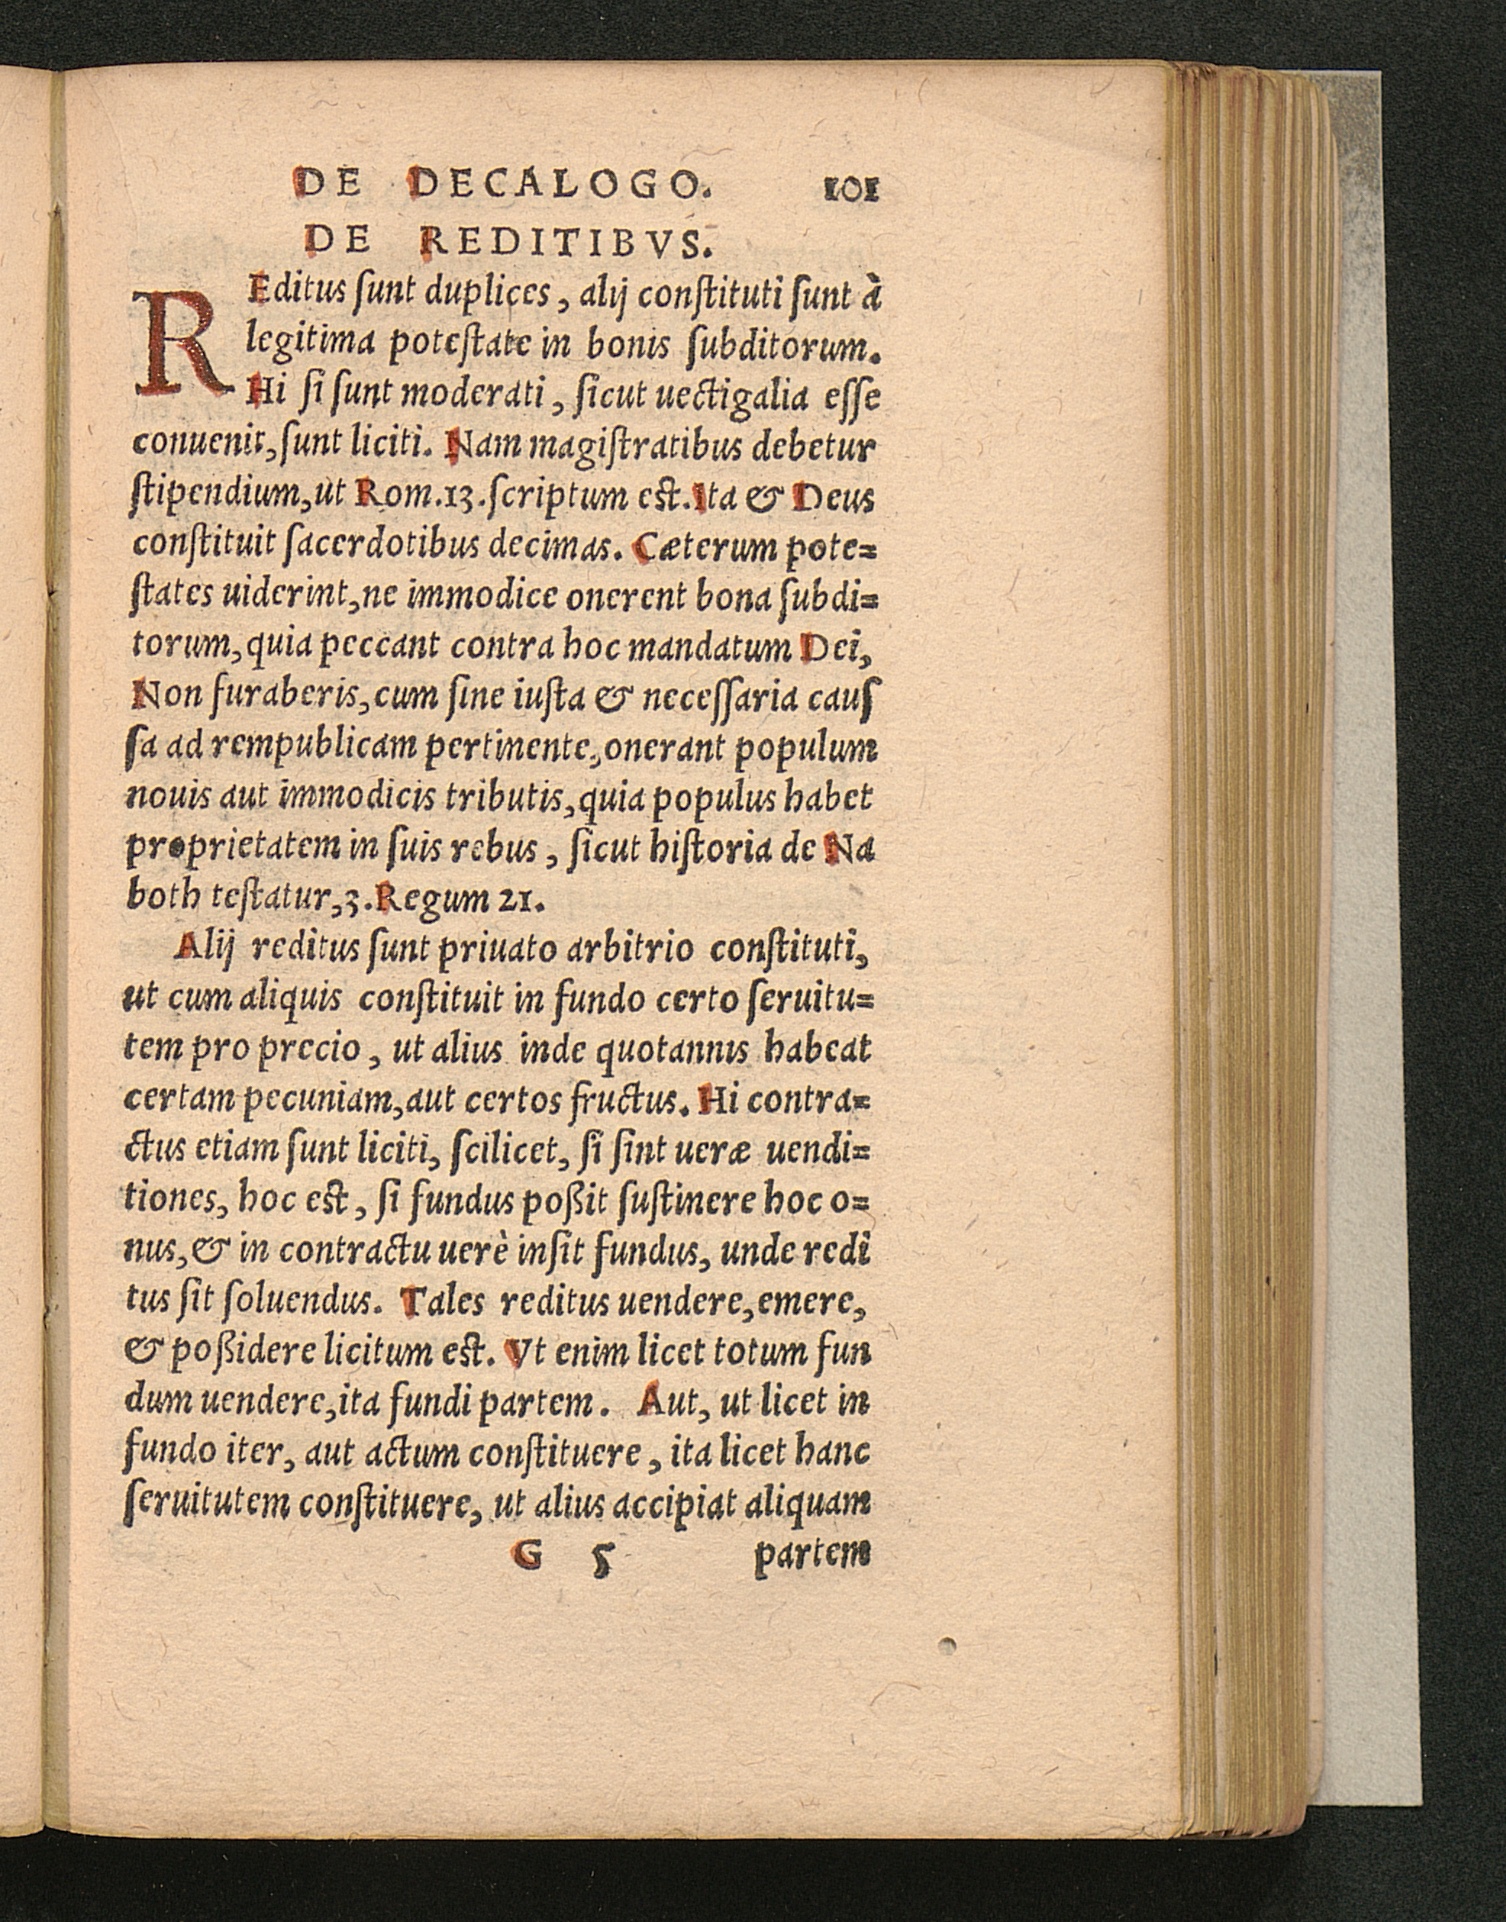 DE DECALOGO. 101
DE REDITIBVS.
REditus ſunt duplices, alij conſtituti ſunt à
legitima poteſtate in bonis ſubditorum.
Hi ſi ſunt moderati, ſicut uectigalia eſſe
conuenit, ſunt liciti. Nam magiſtratibus debetur
ſtipendium, ut Rom. 13. ſcriptum eſt. Ita & Deus
conſtituit ſacerdotibus decimas. Cæterum pote=
ſtates uiderint, ne immodice onerent bona ſubdi=
torum, quia peccant contra hoc mandatum Dei,
Non furaberis, cum ſine iuſta & neceſſaria cauſ
ſa ad rempublicam pertinente, onerant populum
nouis aut immodicis tributis, quia populus habet
proprietatem in ſuis rebus, ſicut hiſtoria de Na
both teſtatur, 3. Regum 21.
Alij reditus ſunt priuato arbitrio conſtituti,
ut cum aliquis conſtituit in fundo certo ſeruitu=
tem pro precio, ut alius inde quotannis habeat
certam pecuniam, aut certos fructus. Hi contra=
ctus etiam ſunt liciti, ſcilicet, ſi ſint ueræ uendi=
tiones, hoc eſt, ſi fundus poßit ſuſtinere hoc o=
nus, & in contractu uerè inſit fundus, unde redi
tus ſit ſoluendus. Tales reditus uendere, emere,
& poßidere licitum eſt. Vt enim licet totum fun
dum uendere, ita fundi partem. Aut, ut licet in
fundo iter, aut actum conſtituere, ita licet hanc
ſeruitutem conſtituere, ut alius accipiat aliquam
G 5 partem